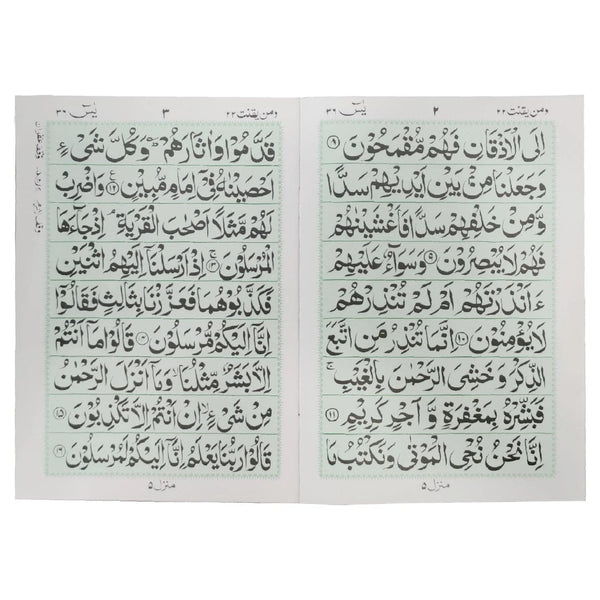 ومن يقنت ٢٢
٢
يٰسٓ ٣٦
اِلَى الْاَذْقَانِ فَهُمْ مُّقْمَحُوْنَ ۝٨
وَجَعَلْنَا مِنْۢ بَيْنِ اَيْدِيْهِمْ سَدًّا
وَّمِنْ خَلْفِهِمْ سَدًّا فَاَغْشَيْنٰهُمْ
فَهُمْ لَا يُبْصِرُوْنَ ۝٩ وَسَوَآءٌ عَلَيْهِمْ
ءَاَنْذَرْتَهُمْ اَمْ لَمْ تُنْذِرْهُمْ
لَا يُؤْمِنُوْنَ ۝١٠ اِنَّمَا تُنْذِرُ مَنِ اتَّبَعَ
الذِّكْرَ وَخَشِيَ الرَّحْمٰنَ بِالْغَيْبِ ۚ
فَبَشِّرْهُ بِمَغْفِرَةٍ وَّاَجْرٍ كَرِيْمٍ ۝١١
اِنَّا نَحْنُ نُحْيِ الْمَوْتٰى وَنَكْتُبُ مَا
منزل ٥
ومن يقنت ٢٢
٣
يٰسٓ ٣٦
قَدَّمُوْا وَاٰثَارَهُمْ ؕ وَكُلَّ شَيْءٍ
اَحْصَيْنٰهُ فِيْٓ اِمَامٍ مُّبِيْنٍ ۝١٢ وَاضْرِبْ
لَهُمْ مَّثَلًا اَصْحٰبَ الْقَرْيَةِ ۘ اِذْ جَآءَهَا
الْمُرْسَلُوْنَ ۝١٣ اِذْ اَرْسَلْنَآ اِلَيْهِمُ اثْنَيْنِ
فَكَذَّبُوْهُمَا فَعَزَّزْنَا بِثَالِثٍ فَقَالُوْٓا
اِنَّآ اِلَيْكُمْ مُّرْسَلُوْنَ ۝١٤ قَالُوْا مَآ اَنْتُمْ
اِلَّا بَشَرٌ مِّثْلُنَا ۙ وَمَآ اَنْزَلَ الرَّحْمٰنُ
مِنْ شَيْءٍ ۙ اِنْ اَنْتُمْ اِلَّا تَكْذِبُوْنَ ۝١٥
قَالُوْا رَبُّنَا يَعْلَمُ اِنَّآ اِلَيْكُمْ لَمُرْسَلُوْنَ ۝١٦
منزل ٥